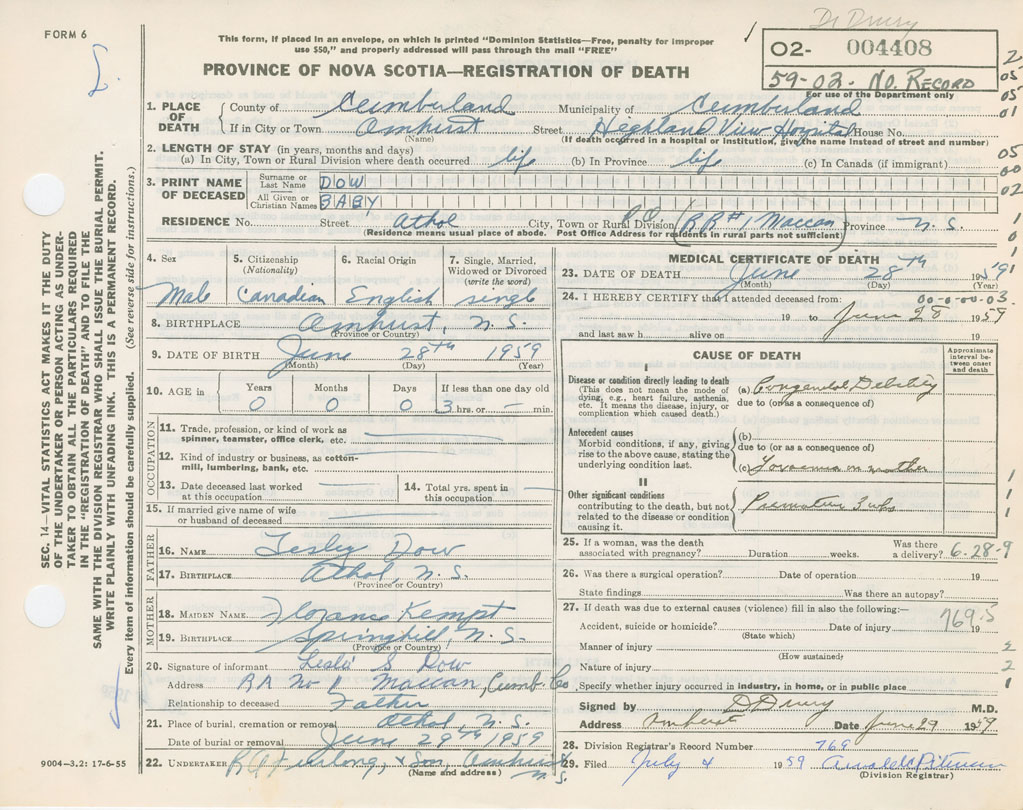 Dr Drury
FORM 6
This form, if placed in an envelope, on which is printed "Dominion Statistics—Free, penalty for improper
use $50," and properly addressed will pass through the mail "FREE"
PROVINCE OF NOVA SCOTIA—REGISTRATION OF DEATH
02- 004408
59-02- No. RECORD
For use of the Department only
1. PLACE OF DEATH
County of Cumberland Municipality of Cumberland
If in City or Town Amherst Street Highland View Hospital House No.
(Name) (If death occurred in a hospital or institution, give the name instead of street and number)
2. LENGTH OF STAY (in years, months and days)
(a) In City, Town or Rural Division where death occurred life (b) In Province life (c) In Canada (if immigrant)
3. PRINT NAME OF DECEASED
Surname or Last Name DOW
All Given or Christian Names BABY
RESIDENCE No. Street Athol City, Town or Rural Division P.O. (RR #1 Maccan) Province N.S.
(Residence means usual place of abode. Post Office Address for residents in rural parts not sufficient)
4. Sex Male
5. Citizenship (Nationality) Canadian
6. Racial Origin English
7. Single, Married, Widowed or Divorced (write the word) single
8. BIRTHPLACE Amhurst, N.S.
(Province or Country)
9. DATE OF BIRTH June 28th 1959
(Month) (Day) (Year)
10. AGE in Years 0 Months 0 Days 0 If less than one day old 3 hrs. or — min.
OCCUPATION
11. Trade, profession, or kind of work as spinner, teamster, office clerk, etc.
12. Kind of industry or business, as cotton-mill, lumbering, bank, etc.
13. Date deceased last worked at this occupation
14. Total yrs. spent in this occupation
15. If married give name of wife or husband of deceased
FATHER
16. NAME Lesley Dow
17. BIRTHPLACE Athol, N.S.
(Province or Country)
MOTHER
18. MAIDEN NAME Florance Kempt
19. BIRTHPLACE Springhill, N.S.
(Province or Country)
20. Signature of informant Leslie S Dow
Address RR No 1 Maccan, Cumb. Co
Relationship to deceased Father
21. Place of burial, cremation or removal Athol, N.S.
Date of burial or removal June 29th 1959
22. UNDERTAKER Furlong, & Son Amhurst N.S.
(Name and address)
MEDICAL CERTIFICATE OF DEATH
23. DATE OF DEATH June 28th 1959
(Month) (Day) (Year)
24. I HEREBY CERTIFY that I attended deceased from: 00-0-00-03.
19 to June 28 1959
and last saw h alive on 19
CAUSE OF DEATH
Approximate interval between onset and death
I
Disease or condition directly leading to death
(This does not mean the mode of dying, e.g., heart failure, asthenia, etc. It means the disease, injury, or complication which caused death.)
(a) Congenital Debility
due to (or as a consequence of)
Antecedent causes
Morbid conditions, if any, giving rise to the above cause, stating the underlying condition last.
(b)
due to (or as a consequence of)
(c) Toxaemia in mother
II
Other significant conditions
contributing to the death, but not related to the disease or condition causing it.
Premature 3 wks
25. If a woman, was the death associated with pregnancy? Duration weeks. Was there a delivery? 6-28-9
26. Was there a surgical operation? Date of operation 19
State findings Was there an autopsy?
27. If death was due to external causes (violence) fill in also the following:—
769.5
Accident, suicide or homicide? Date of injury 19
(State which)
Manner of injury
(How sustained)
Nature of injury
Specify whether injury occurred in industry, in home, or in public place
Signed by D Drury M.D.
Address Amherst Date June 29 1959
28. Division Registrar's Record Number 769
29. Filed July 4 1959
(Division Registrar)
SEC. 14—VITAL STATISTICS ACT MAKES IT THE DUTY
OF THE UNDERTAKER OR PERSON ACTING AS UNDER-
TAKER TO OBTAIN ALL THE PARTICULARS REQUIRED
IN THE "REGISTRATION OF DEATH" AND FILE THE
SAME WITH THE DIVISION REGISTRAR WHO SHALL ISSUE THE BURIAL PERMIT.
WRITE PLAINLY WITH UNFADING INK. THIS IS A PERMANENT RECORD.
Every item of information should be carefully supplied. (See reverse side for instructions.)
9004—3.2: 17-6-55
2
05
05
01
05
00
02
1
1
0
1
9
1
1
1
2
2
1